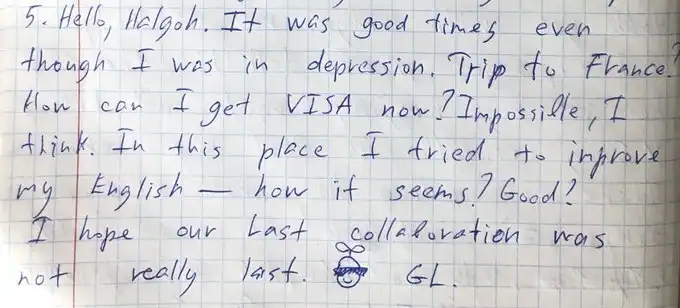 5. Hello, Halgoh. It was good times even
though I was in depression. Trip to France?
How can I get VISA now? Impossible, I
think. In this place I tried to inprove
my English — how it seems? Good?
I hope our Last collaboration was
not really last. GL.